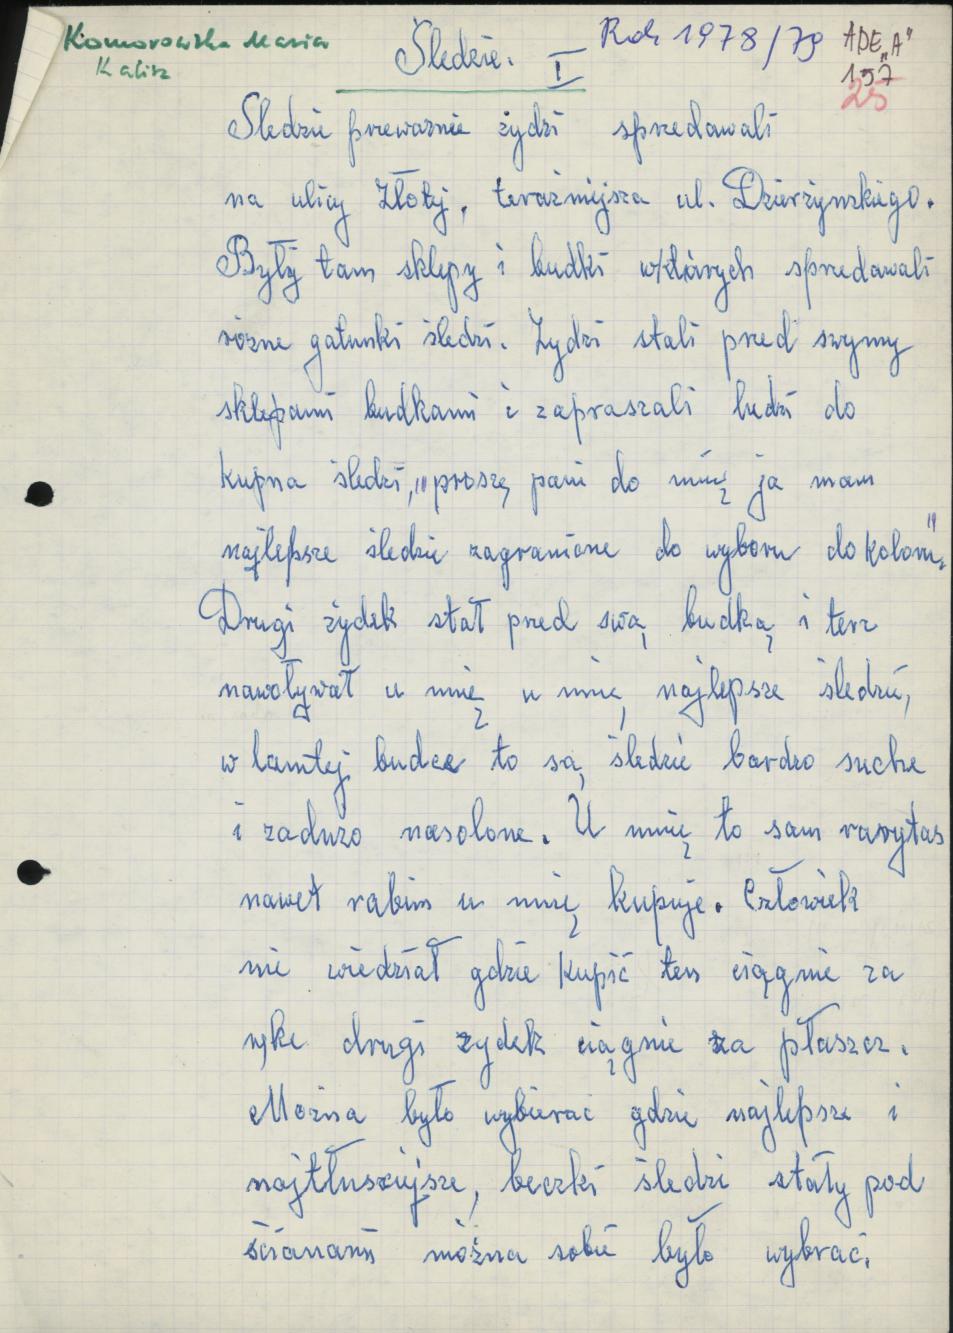 Komorowska Maria
Kalisz
Śledzie.
I
Rok 1978/79
ADE „A"
197
25
Śledzie przewaznie żydzi sprzedawali
na ulicy Złotej, teraźniejsza ul. Dzierżynskiego.
Były tam sklepy i budki w których sprzedawali
rózne gatunki śledzi. Żydzi stali przed swymy
sklepami budkami i zapraszali ludzi do
kupna śledzi, "proszę pani do mnię ja mam
najlepsze śledzie zagraniczne do wyboru do koloru".
Drugi żydek stał przed swą budką i terz
nawoływał u mnię u mnię najlepsze śledzie,
w tamtej budce to są śledzie bardzo suche
i zaduzo nasolone. U mnię to sam rarytas
nawet rabim u mnię kupuje. Człowiek
nie wiedział gdzie kupić ten ciągnie za
rękę drugi zydek ciągnie za płaszcz.
Mozna było wybierać gdzie najlepsze i
najtłusciejsze, beczki śledzi stały pod
ścianami można sobie było wybrać.